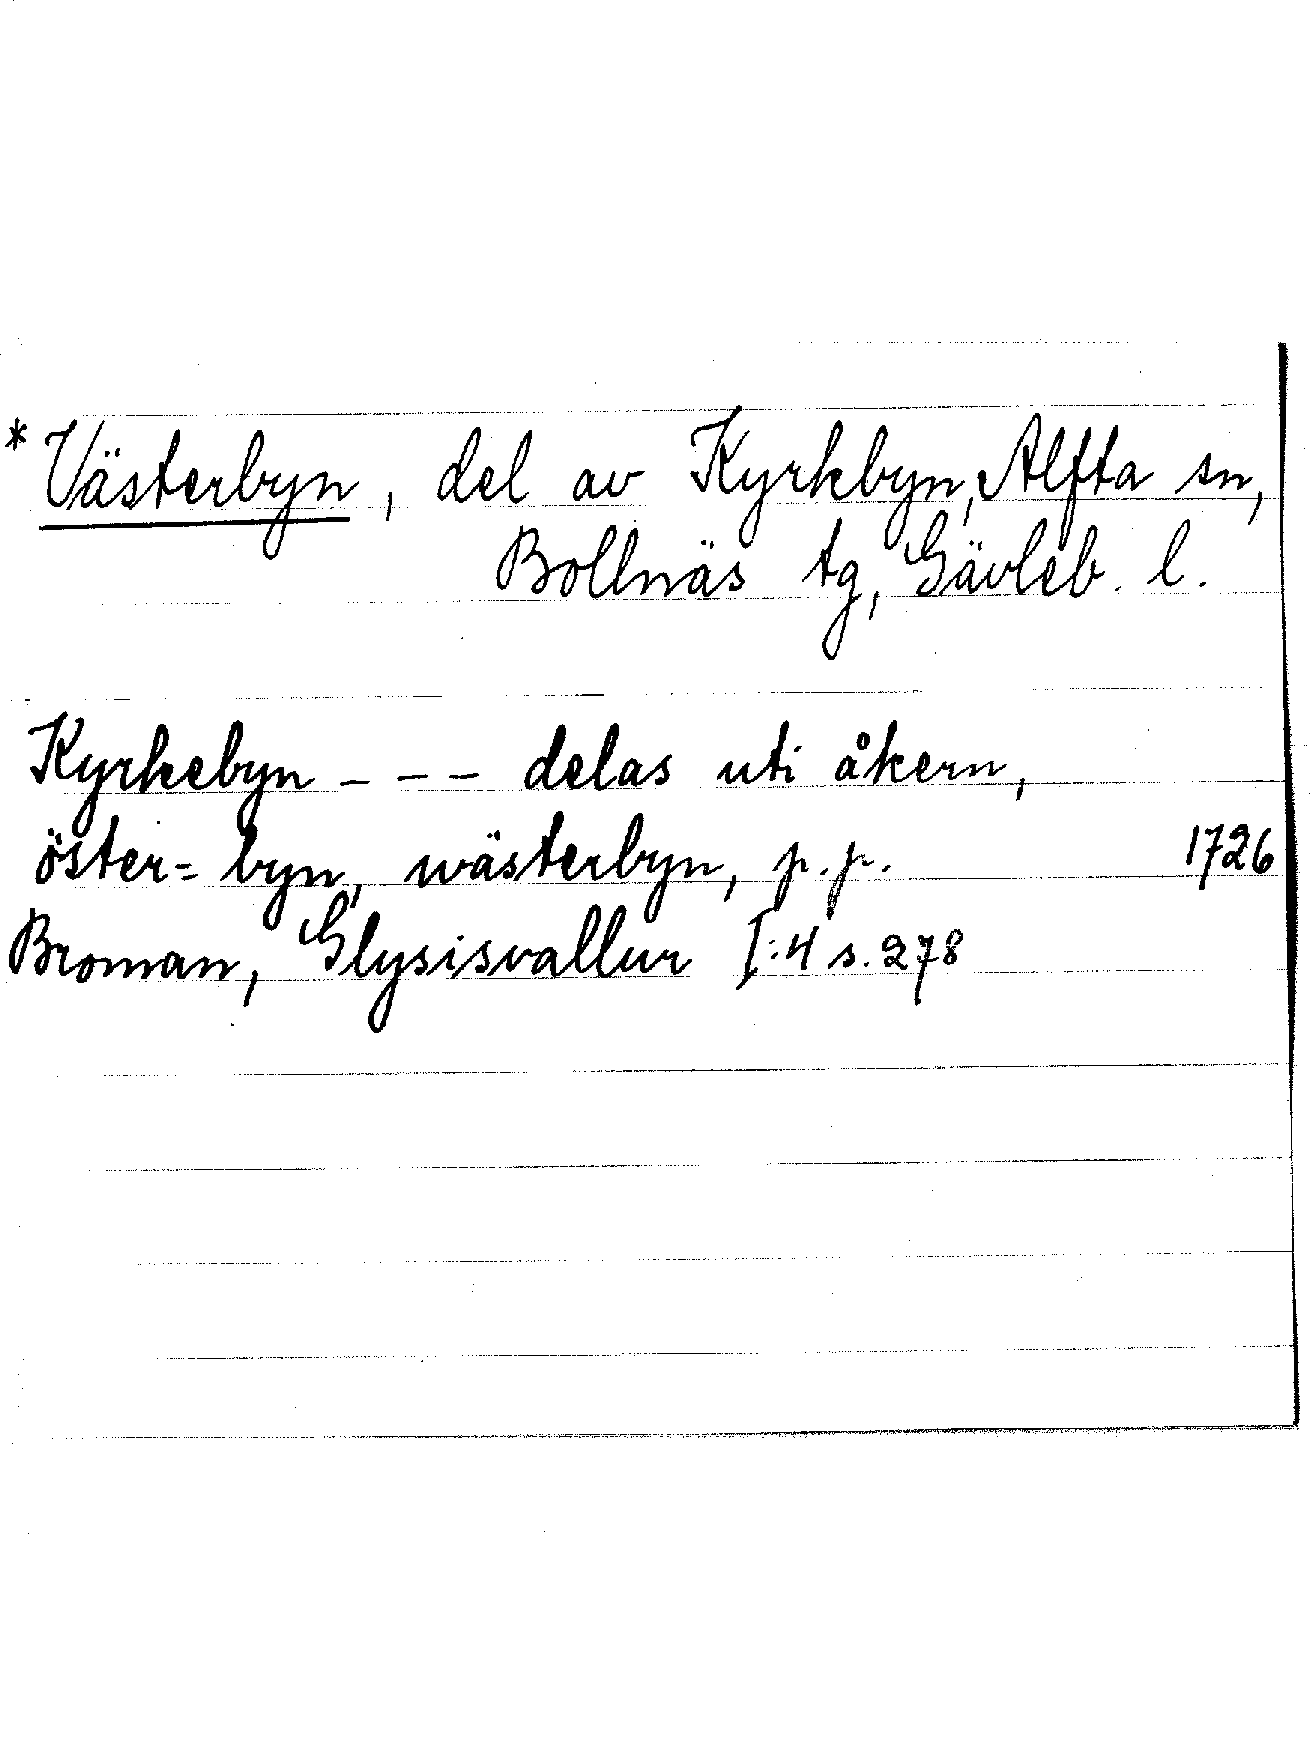 * Västerbyn, del av Kyrkbyn, Alfta sn,
Bollnäs tg, Gävleb. l.
Kyrkebyn - - - delas uti åkern,
öster= byn, wästerbyn, p.p. 1726
Broman, Glysisvallur I:4 s. 278